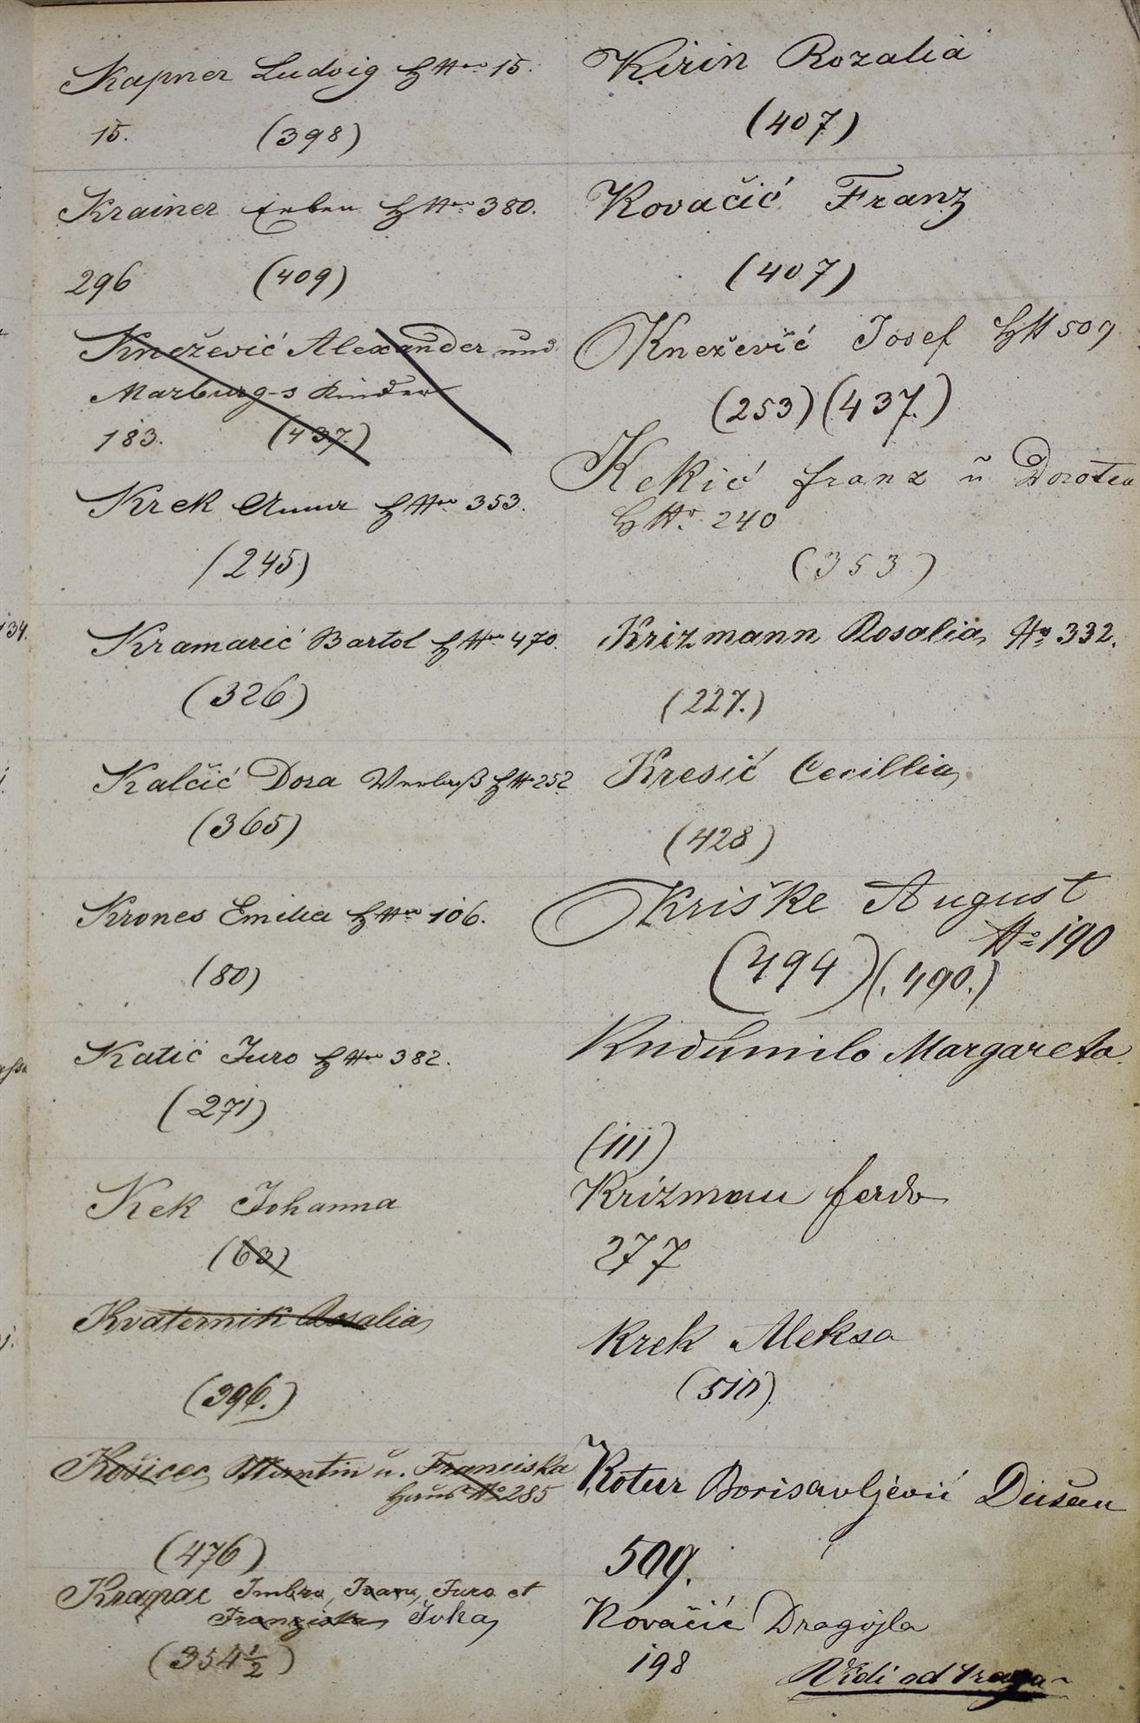 Kapner Ludvig H№ 15.
15. (398)
Krainer Erben H№ 380.
296 (409)
Knežević Alexander und
Marburg-s Kinder
183. (437.)
Krek Anna H№ 353.
(245)
Kramarić Bartol H№ 470.
(326)
Kalčić Dora Verlaß H№ 252
(365)
Krones Emilia H№ 106.
(80)
Katić Juro H№ 382.
(271)
Kek Johanna
(63)
Kvaternik Rosalia
(396.)
Košicec Martin u. Franciska
Haus № 285
(476)
Krapac Imbro, Ivan, Juro et
Franziska Ivka
(354½)
Kirin Rozalia
(407)
Kovačić Franz
(407)
Knežević Josef H№ 509
(253) (437.)
Kekić franz ũ Dorotea
H№ 240
(353)
Krizmann Rosalia № 332.
(227.)
Kresić Cecillia
(428)
Kriške August
№ 190
(494) (490.)
Knidumilo Margareta
(111)
Krizman ferdo
277
Krek Aleksa
(510)
Kotur Borisavljević Dušan
509.
Kovačić Dragojla
198
Vidi od traga